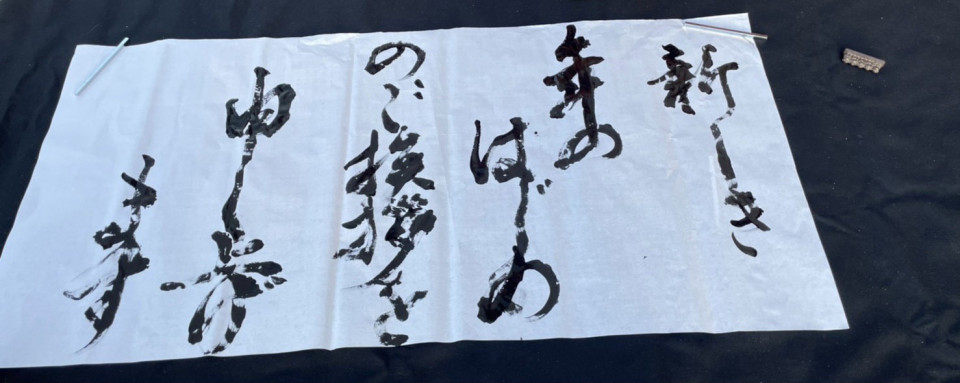 新しき
年の
はじめ
のご挨拶を
申し上げ
ます